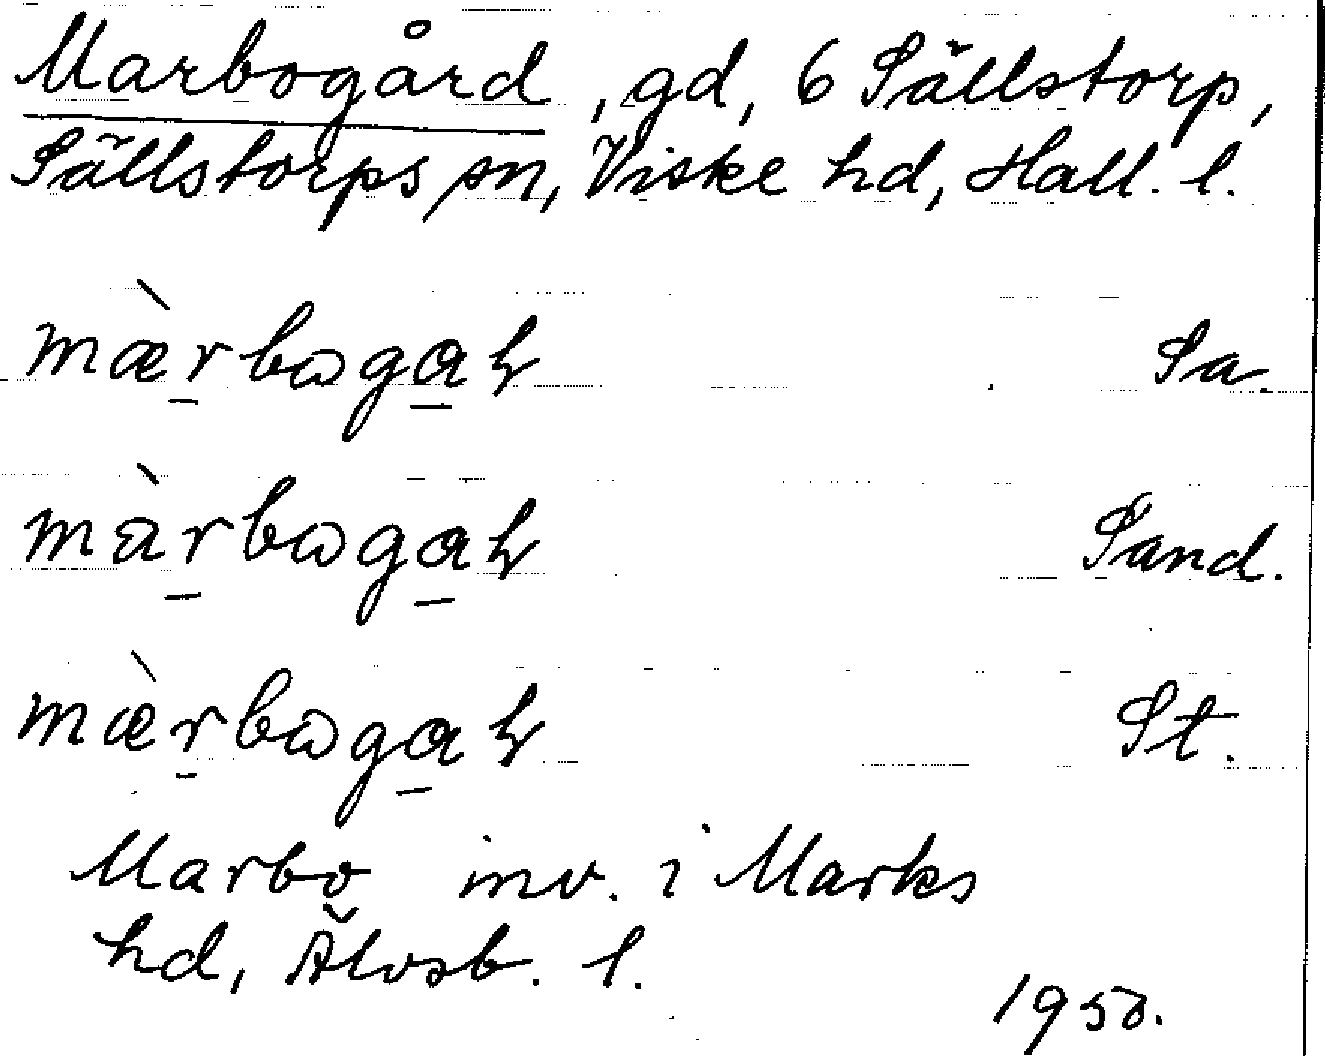 Marbogård, gd, 6 Sällstorp,
Sällstorps sn, Viske hd, Hall. l.
mæ̀rbωgaɽ Sa.
màrbωgaɽ Sand.
mæ̀rbωgaɽ St.
Marbo inv. i Marks
hd, Älvsb. l.
1950.